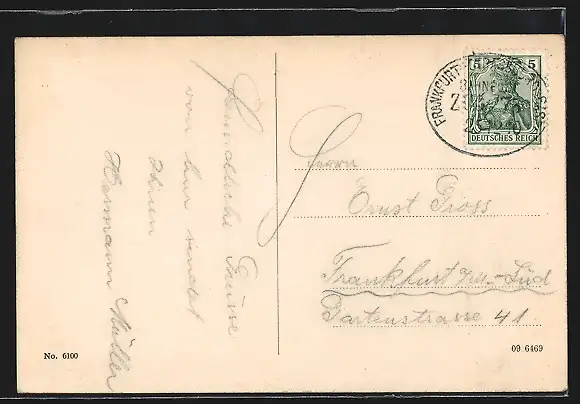 Freundliche Grüsse
von hier sendet
Ihnen
Hermann Müller
FRANKFURT
5 5
DEUTSCHES REICH
Herrn
Ernst Gross
Frankfurt M-Süd
Gartenstrasse 41.
No. 6100
09 6469